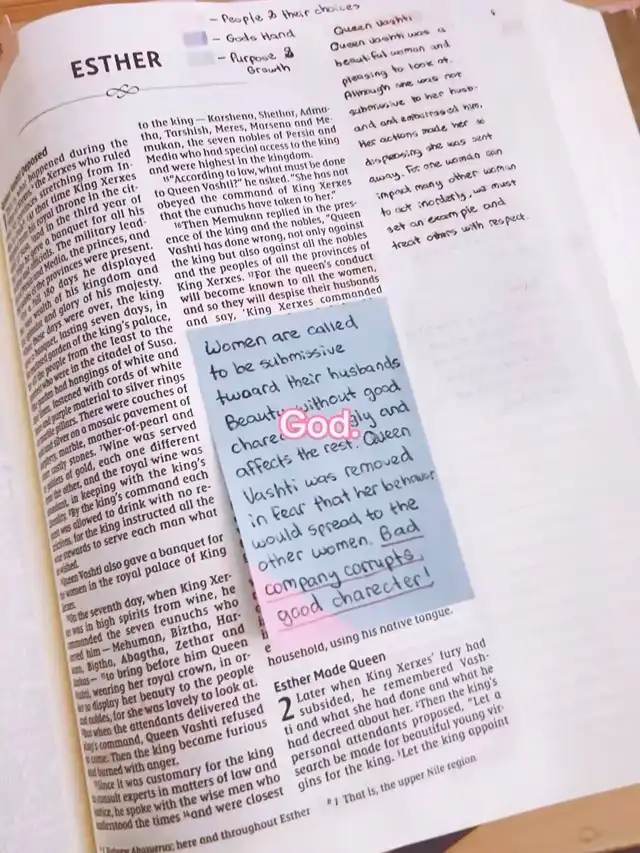 - People & their choices
- Gods Hand
- Purpose & Growth
ESTHER
Queen Vashti
Queen Vashti was a
beautiful woman and
pleasing to look at.
Although she was not
submissive to her husb-
and and embarrassed him.
Her actions made her so
displeasing she was sent
away. For one woman can
impact many other woman
to act inorderly, we must
set an example and
treat others with respect.
happened during the
Xerxes who ruled
stretching from In-
that time King Xerxes
royal throne in the cit-
in the third year of
a banquet for all his
The military lead-
Media, the princes, and
the provinces were present.
180 days he displayed
wealth of his kingdom and
and glory of his majesty.
days were over, the king
banquet, lasting seven days, in
garden of the king's palace,
the people from the least to the
who were in the citadel of Susa.
had hangings of white and
fastened with cords of white
and purple material to silver rings
pillars. There were couches of
and silver on a mosaic pavement of
marble, mother-of-pearl and
costly stones. ⁷Wine was served
of gold, each one different
the other, and the royal wine was
in keeping with the king's
⁸By the king's command each
was allowed to drink with no re-
for the king instructed all the
stewards to serve each man what
he wished.
Queen Vashti also gave a banquet for
women in the royal palace of King
Xerxes.
On the seventh day, when King Xer-
was in high spirits from wine, he
commanded the seven eunuchs who
served him — Mehuman, Biztha, Har-
Bigtha, Abagtha, Zethar and
Karkas — ¹¹to bring before him Queen
Vashti, wearing her royal crown, in or-
to display her beauty to the people
and nobles, for she was lovely to look at.
But when the attendants delivered the
king's command, Queen Vashti refused
to come. Then the king became furious
and burned with anger.
Since it was customary for the king
to consult experts in matters of law and
justice, he spoke with the wise men who
understood the times ¹⁴and were closest
to the king — Karshena, Shethar, Adma-
tha, Tarshish, Meres, Marsena and Me-
mukan, the seven nobles of Persia and
Media who had special access to the king
and were highest in the kingdom.
¹⁵"According to law, what must be done
to Queen Vashti?" he asked. "She has not
obeyed the command of King Xerxes
that the eunuchs have taken to her."
¹⁶Then Memukan replied in the pres-
ence of the king and the nobles, "Queen
Vashti has done wrong, not only against
the king but also against all the nobles
and the peoples of all the provinces of
King Xerxes. ¹⁷For the queen's conduct
will become known to all the women,
and so they will despise their husbands
and say, 'King Xerxes commanded
Women are called
to be submissive
tward their husbands
Beauty without good
God.
affects the rest. Queen
Vashti was removed
in fear that her behavor
would spread to the
other women. Bad
company corrupts
good charecter!
household, using his native tongue.
Esther Made Queen
2 Later when King Xerxes' fury had
subsided, he remembered Vash-
ti and what she had done and what he
had decreed about her. ²Then the king's
personal attendants proposed, "Let a
search be made for beautiful young vir-
gins for the king. ³Let the king appoint
Hebrew Ahasuerus; here and throughout Esther
ᵇ 1 That is, the upper Nile region